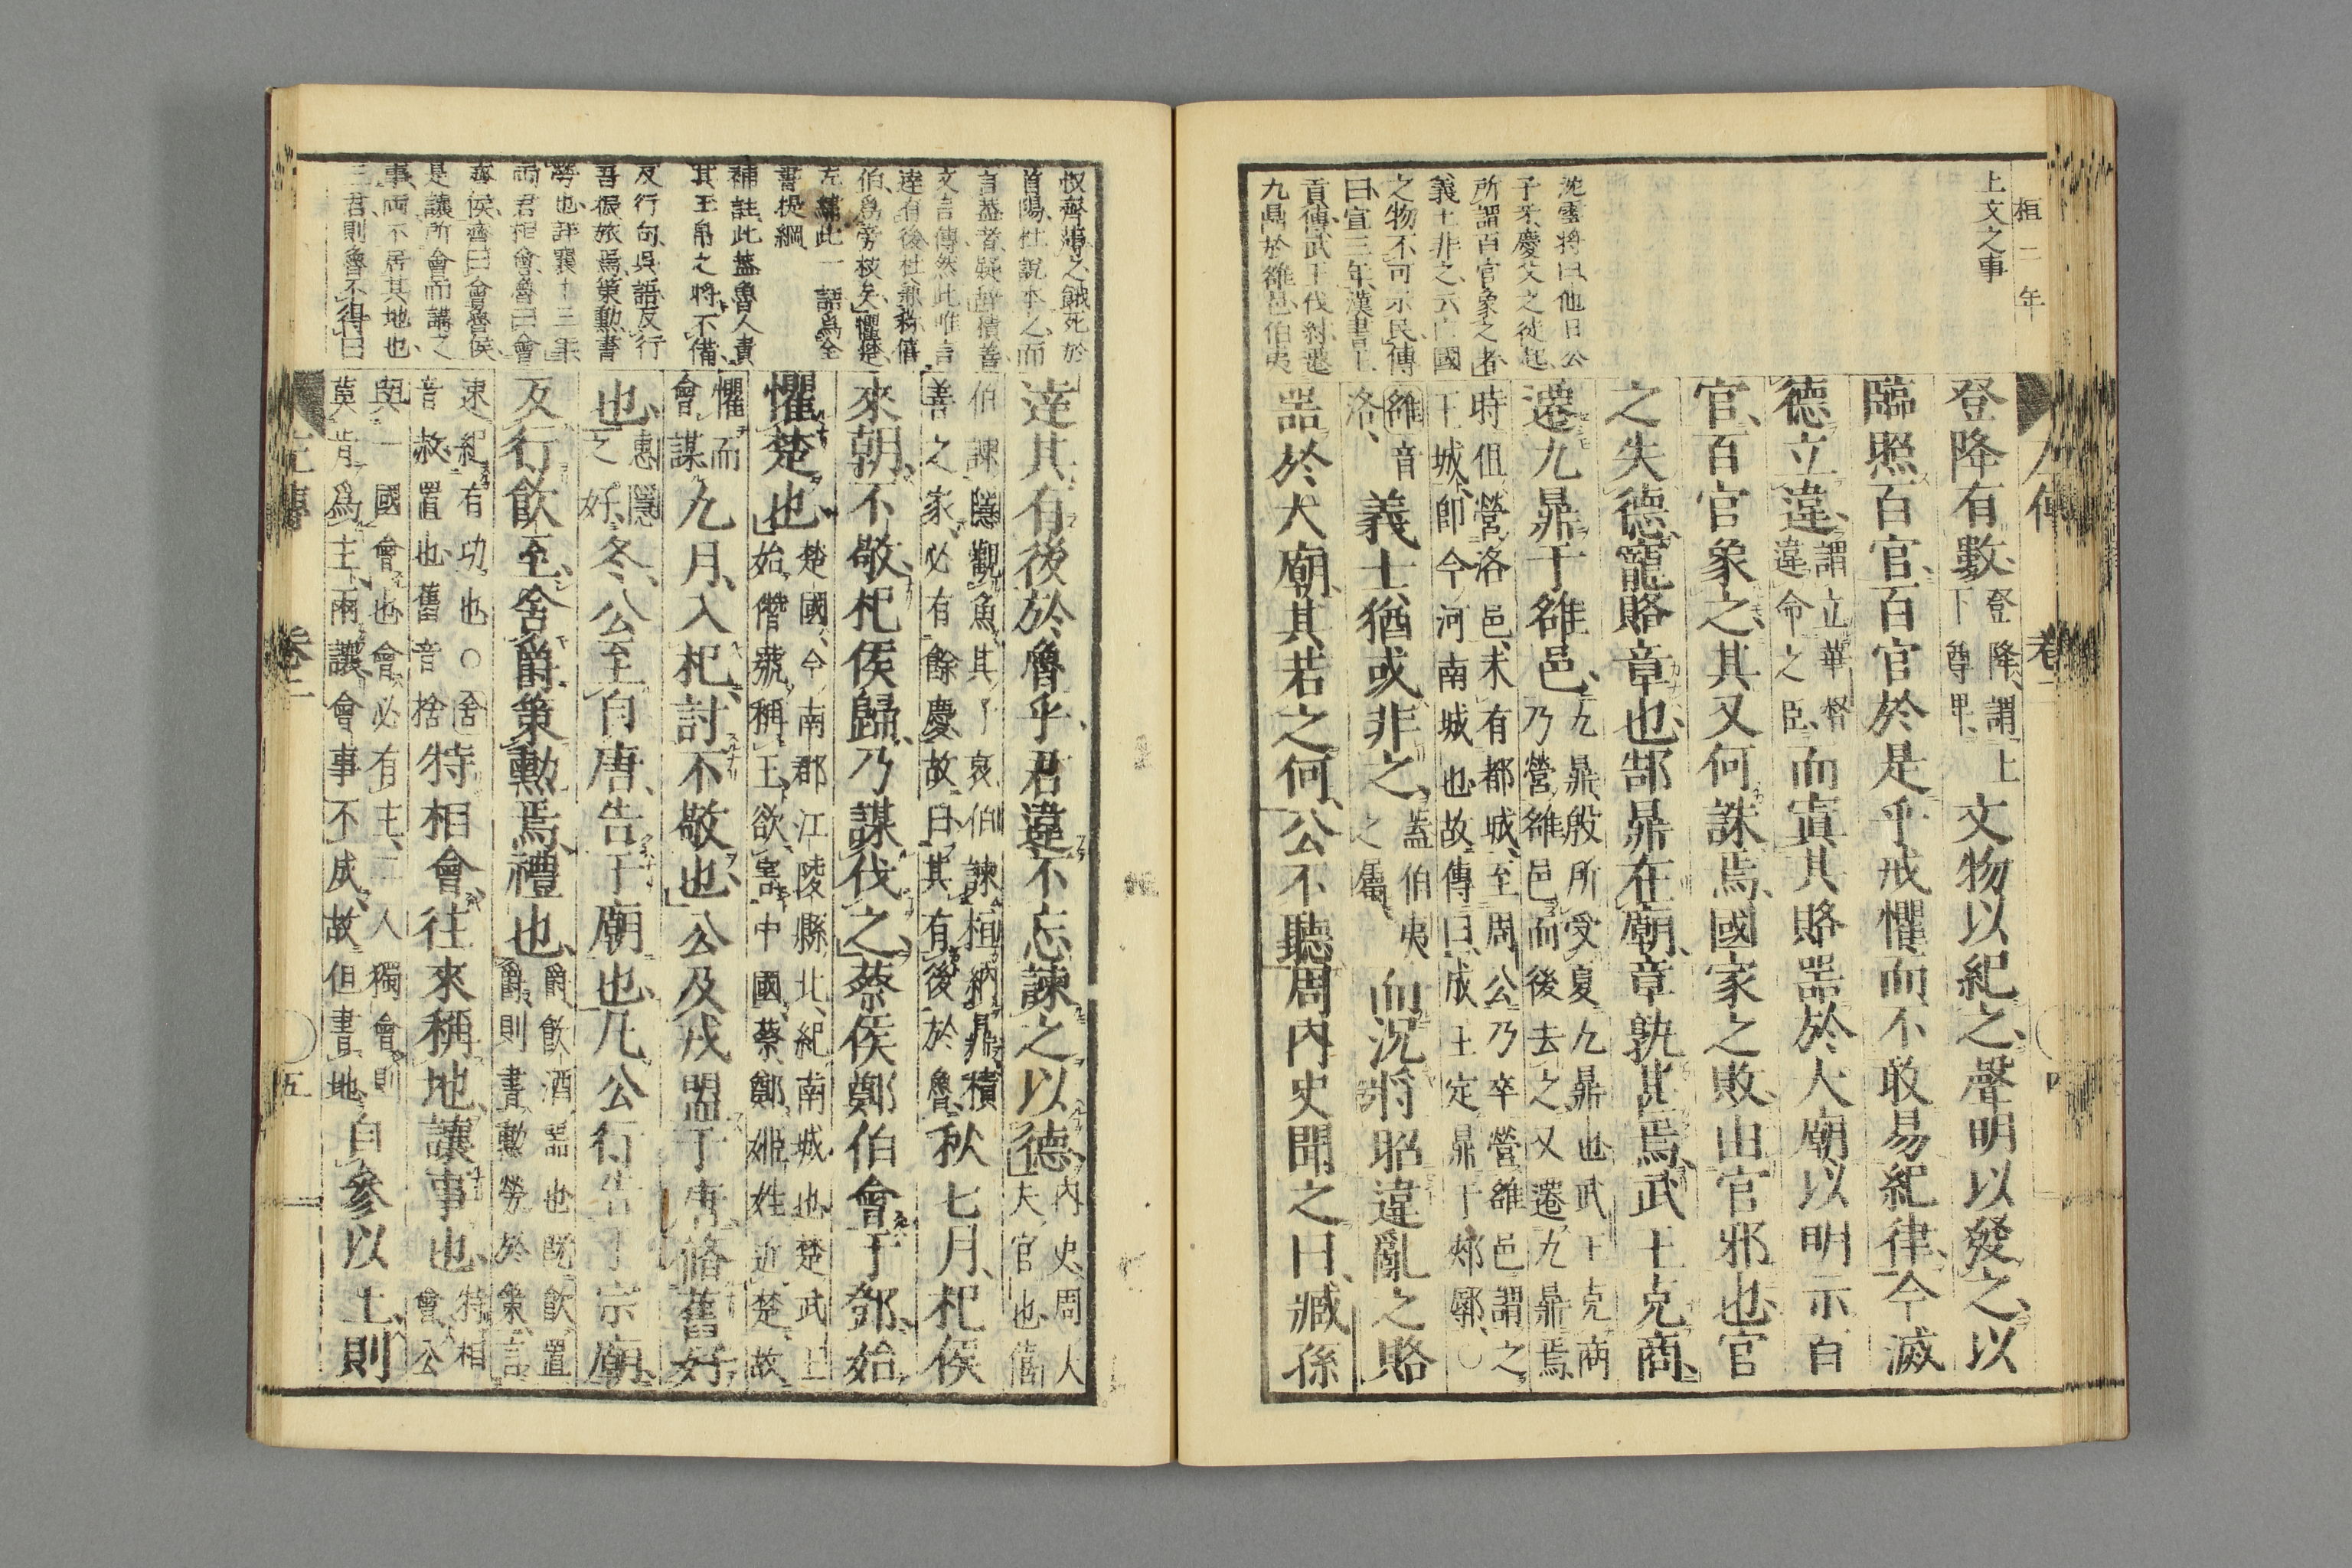 桓二年
上文之事
沈雲將曰他日公
子釆慶父之徒起
所謂百官象之者
義士非之云亡國
之物不可示民傳
曰宣三年漢書王
貢傳武王伐紂遷
九鼎於雒邑伯夷
登降有數登降謂上下尊卑文物以紀之聲明以發之以
臨照百官百官於是乎戒懼而不敢易紀律今滅
德立違謂立華督違命之臣而寘其賂噐於大廟以明示百
官百官象之其又何誅焉國家之敗由官邪也官
之失德寵賂章也郜鼎在廟章孰甚焉武王克商
遷九鼎于雒邑九鼎殷所受夏九鼎也武王克商乃營雒邑而後去之又遷九鼎焉
時但營洛邑未有都城至周公乃卒營雒邑謂之王城卽今河南城也故傳曰成王定鼎于郟鄏○
雒音洛義士猶或非之蓋伯夷之屬而況將昭違亂之賂
噐於大廟其若之何公不聽周內史聞之曰臧孫
卷二
叔齊薄之餓死於
首陽杜說本之而
言蓋者疑辭積善
文言傳然此唯言
達有後杜兼稱僖
伯爲旁枝矣懼楚
左繡此一語爲全
書提綱
補註此蓋魯人責
其玉帛之將不備
反行句吳語反行
吾振旅焉策勳書
勞也詳襄十三年
兩君相會魯曰會
齊侯齊曰會魯侯
是讓所會而講之
事兩不居其地也
三君則魯不得曰
達其有後於魯乎君違不忘諫之以德內史周大夫官也僖
伯諫隱觀魚其子哀伯諫桓納鼎積善之家必有餘慶故曰其有後於魯秋七月杞侯
來朝不敬杞侯歸乃謀伐之蔡侯鄭伯會于鄧始
懼楚也楚國今南郡江陵縣北紀南城也楚武王始僭號稱王欲害中國蔡鄭姬姓近楚故
懼而會謀九月入杞討不敬也公及戎盟于唐脩舊好
也惠隱之好冬公至自唐告于廟也凡公行告于宗廟
反行飮至舍爵策勳焉禮也爵飮酒噐也旣飮置爵則書勳勞於策言
速紀有功也○舍音赦置也舊音捨特相會往來稱地讓事也特相會公
與一國會也會必有主二人獨會則莫肯爲主兩讓會事不成故但書地自參以上則
左傳
卷二
五